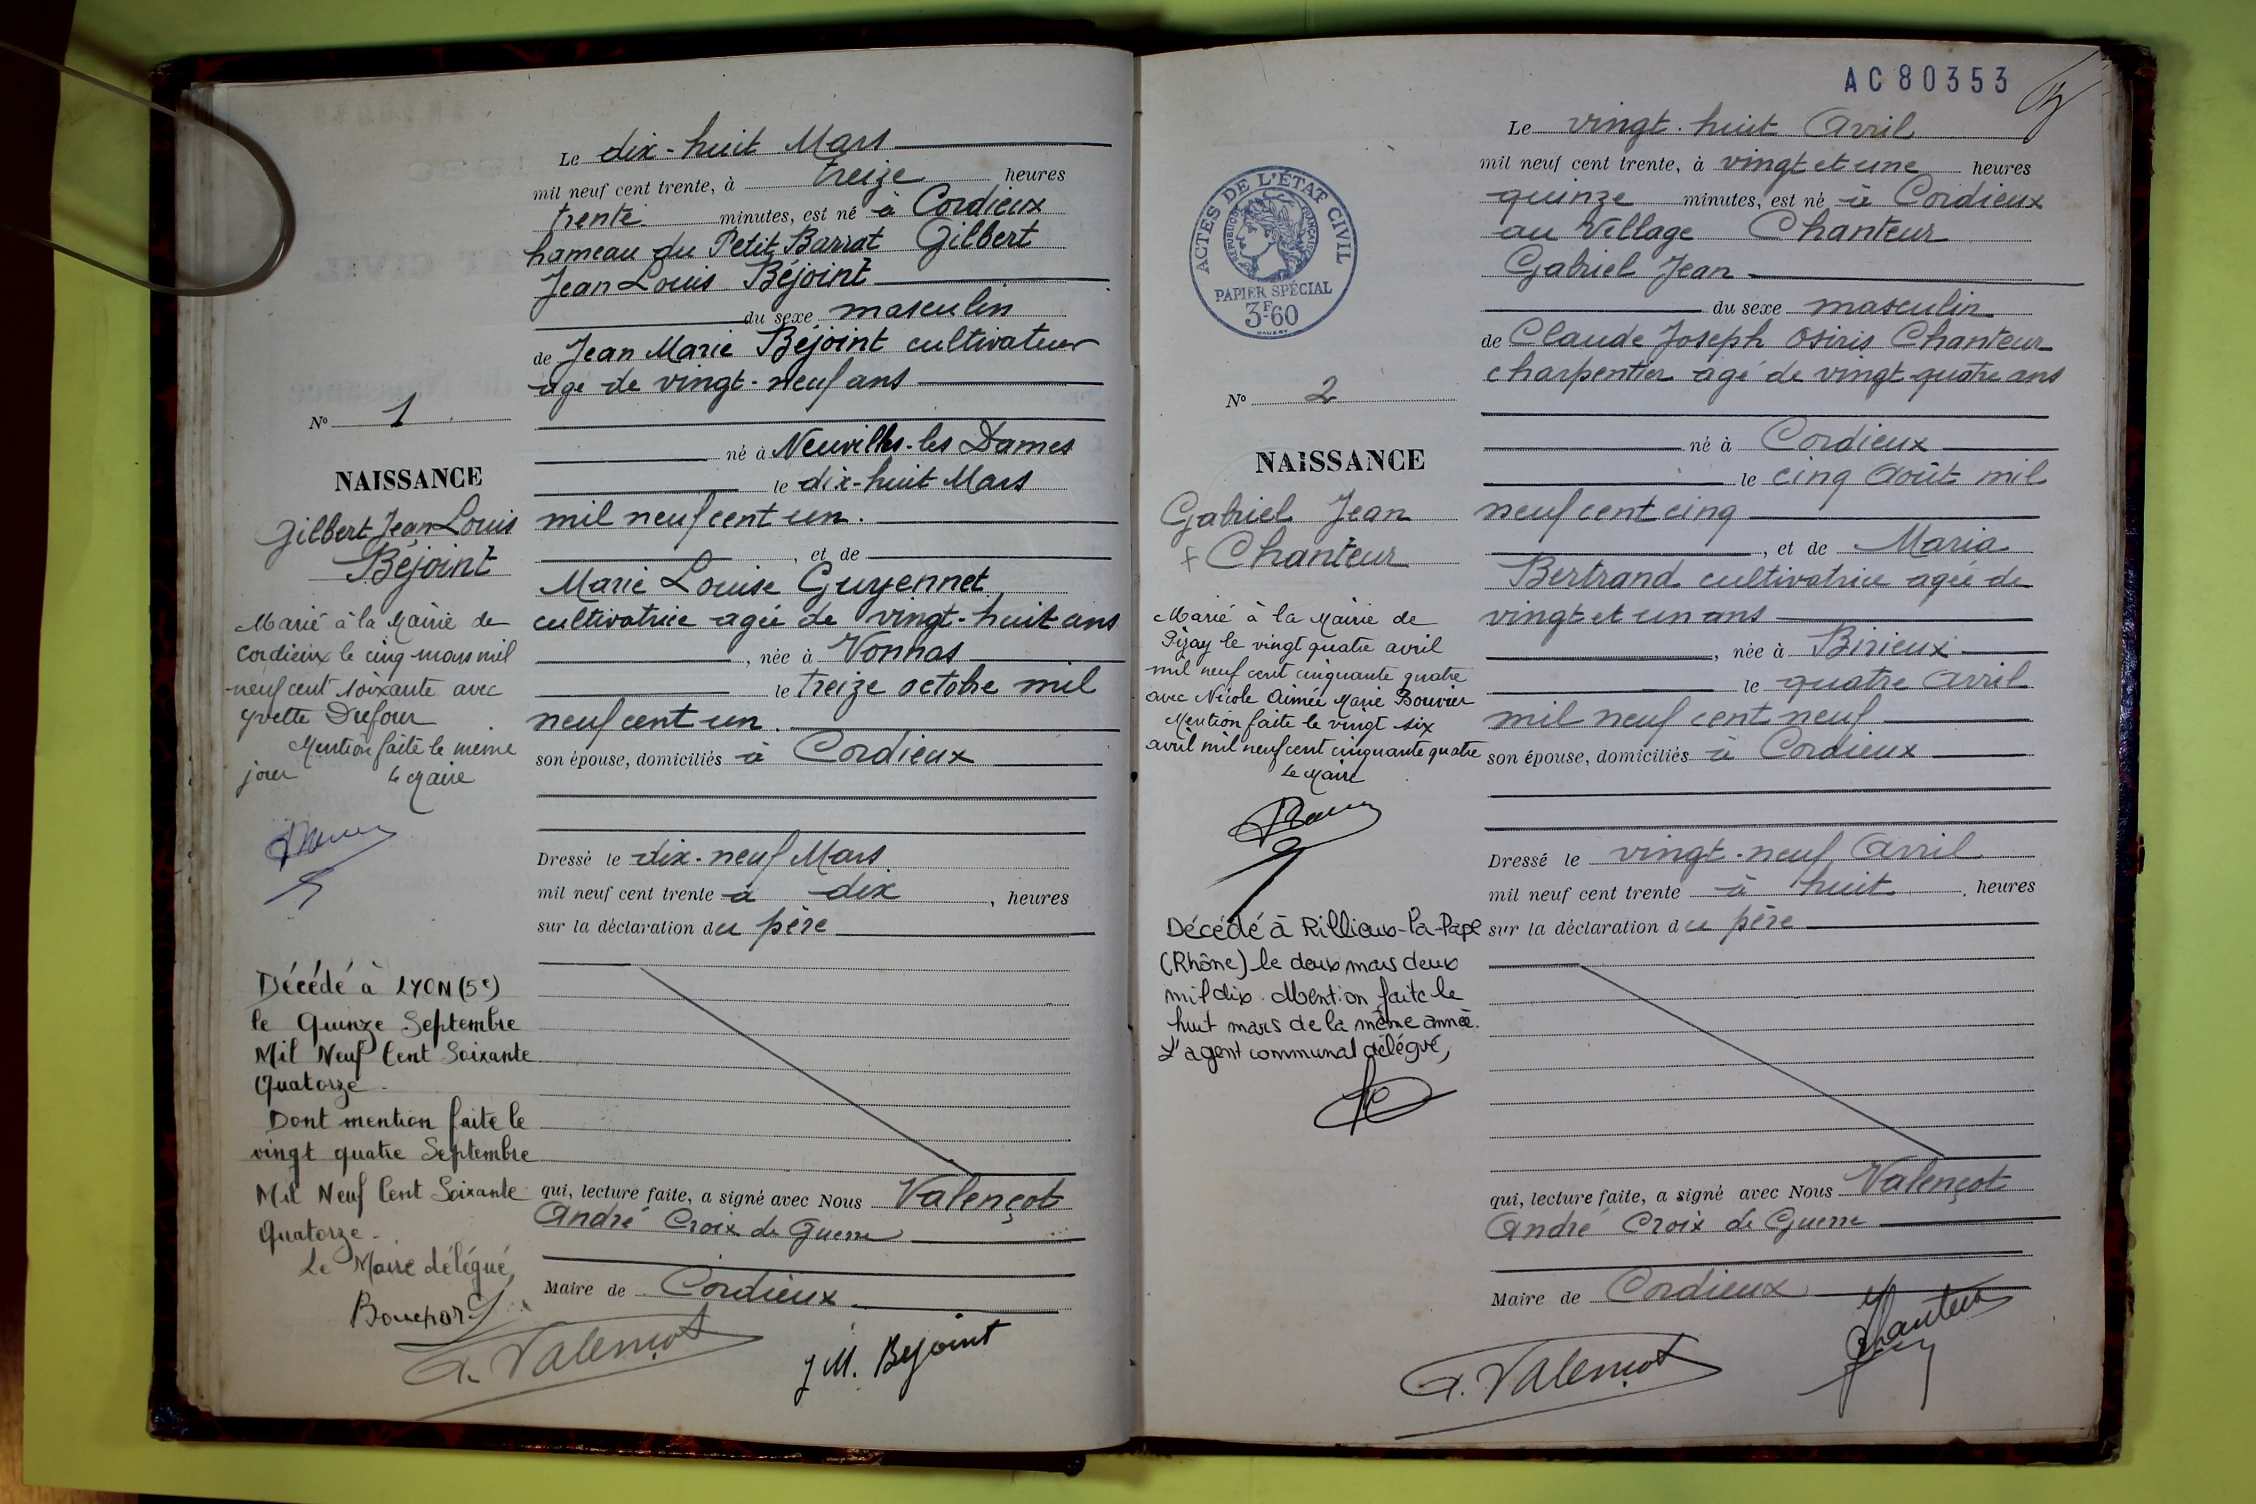 Le dix-huit Mars
mil neuf cent trente, à treize heures
trente minutes, est né à Cordieux
hameau du Petit Barrat Gilbert
Jean Louis Béjoint
du sexe masculin
de Jean Marie Béjoint cultivateur
agé de vingt-neuf ans
né à Neuvilles-les Dames
le dix-huit Mars
mil neuf cent un.
, et de
Marie Louise Guyennet
cultivatrice agée de vingt-huit ans
, née à Vonnas
le treize octobre mil
neuf cent un.
son épouse, domiciliés à Cordieux
Dressé le dix-neuf Mars
mil neuf cent trente à dix, heures
sur la déclaration du père
qui, lecture faite, a signé avec Nous Valençot
André Croix de Guerre
Maire de Cordieux
A. Valençot
J M. Béjoint
No 1
NAISSANCE
Gilbert Jean Louis
Béjoint
Marié à la Mairie de
Cordieux le cinq mars mil
neuf cent soixante avec
Yvette Dufour
Mention faite le même
jour Le Maire
Décédé à LYON (5e)
le Quinze Septembre
Mil Neuf Cent Soixante
Quatorze.
Dont mention faite le
vingt quatre Septembre
Mil Neuf Cent Soixante
Quatorze.
Le Maire délégué,
AC80353
ACTES DE L'ÉTAT CIVIL
RÉPUBLIQUE FRANÇAISE
PAPIER SPÉCIAL
3F60
No 2
NAISSANCE
Gabriel Jean
Chanteur
Marié à la Mairie de
Pizay le vingt quatre avril
mil neuf cent cinquante quatre
avec Nicole Aimée Marie Bouvier
Mention faite le vingt six
avril mil neuf cent cinquante quatre
Le Maire
Décédé à Rillieux-la-Pape
(Rhône) le deux mars deux
mil dix. Mention faite le
huit mars de la même année.
L'agent communal délégué,
Le vingt-huit Avril
mil neuf cent trente, à vingt et une heures
quinze minutes, est né à Cordieux
au Village Chanteur
Gabriel Jean
du sexe masculin
de Claude Joseph Osiris Chanteur
charpentier agé de vingt-quatre ans
né à Cordieux
le cinq Août mil
neuf cent cinq
, et de Maria
Bertrand cultivatrice agée de
vingt et un ans
, née à Birieux
le quatre Avril
mil neuf cent neuf
son épouse, domiciliés à Cordieux
Dressé le vingt-neuf Avril
mil neuf cent trente à huit, heures
sur la déclaration du père
qui, lecture faite, a signé avec Nous Valençot
André Croix de Guerre
Maire de Cordieux
A. Valençot
Chanteur